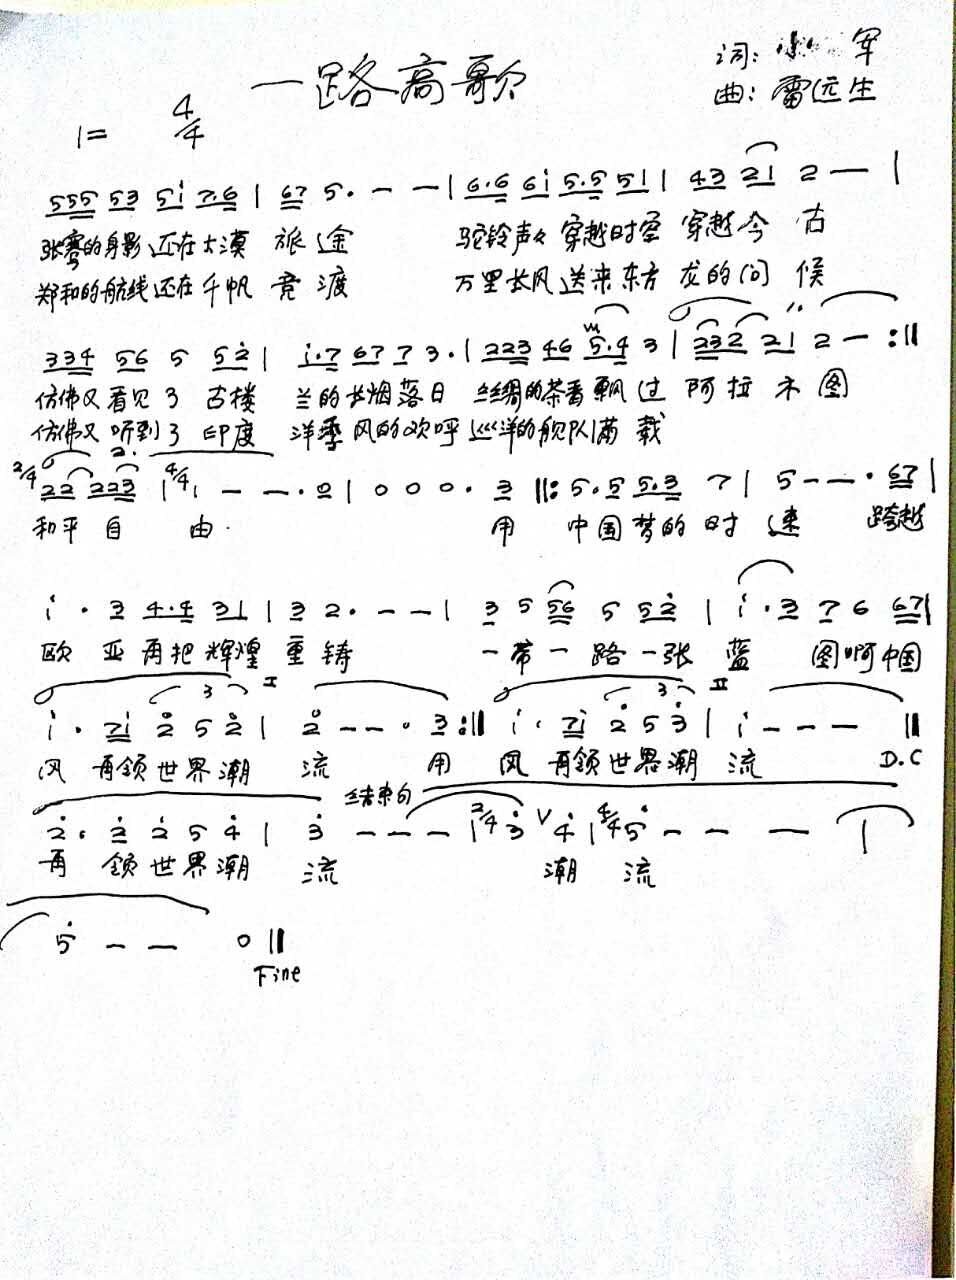 一路高歌
词: 军
曲: 雷远生
1= 4/4
555 53 5i 7.6 | 67 5. - - | 6.6 6i 5.5 51 | 43 21 2 - |
张骞的身影还在大漠 旅途 驼铃声声穿越时空 穿越今古
郑和的航线还在千帆 竞渡 万里长风送来东方 龙的问候
334 56 5 52̇ | i.7 67 7 3. | 223 46 5.4 3 | 232 21 2 - :||
仿佛又看见了 古楼 兰的长烟落日 丝绸的茶香飘过 阿拉木图
仿佛又听到了 印度 洋季风的欢呼 巡洋的舰队满载
2/4 22 223 | 4/4 1 - - . 0 | 0 0 0 . 3 ||: 5.5 5.3 7 | 5 - - . 67 |
和平自 由. 用 中国梦的时速 跨越
i . 3 4.4 31 | 3 2. - - | 3 5 56 5 52̇ | i . 3 7 6 67 |
欧亚再把辉煌重铸 一带一路一张蓝 图啊中国
i . 7i 2̇ 5 2̇ | 2̇ - - . 3 :|| i . 7i 2̇ 5 3̇ | i - - - ||
风 再领世界潮 流 用 风 再领世界潮 流 D.C
结束句
2̇ . 2̇ 2̇ 5 4̇ | 3̇ - - - | 2/4 3̇ V 4̇ | 4/4 5̇ - - - |
再 领世界潮 流 潮 流
5̇ - - 0 ||
Fine